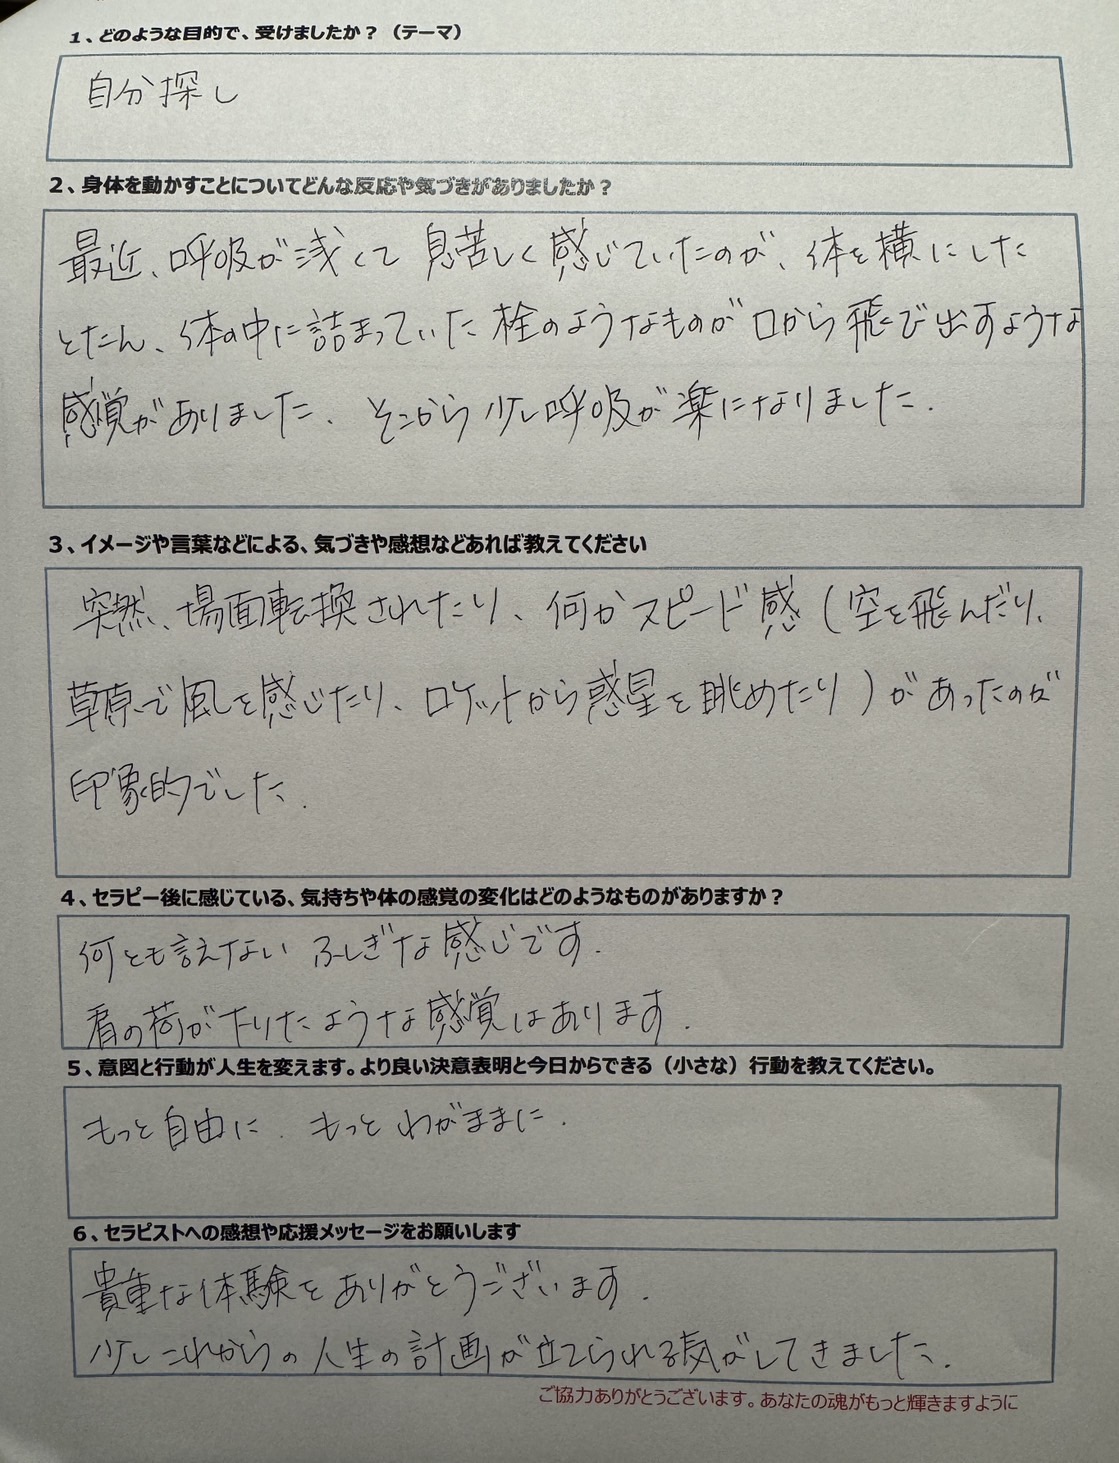 1、どのような目的で、受けましたか？（テーマ）
自分探し
2、身体を動かすことについてどんな反応や気づきがありましたか？
最近、呼吸が浅くて 息苦しく感じていたのが、体を横にした
とたん、体の中に詰まっていた栓のようなものが口から飛び出すような
感覚がありました. そこから少し呼吸が楽になりました.
3、イメージや言葉などによる、気づきや感想などあれば教えてください
突然、場面転換されたり、何かスピード感（空を飛んだり、
草原で風を感じたり、ロケットから惑星を眺めたり）があったのが
印象的でした.
4、セラピー後に感じている、気持ちや体の感覚の変化はどのようなものがありますか？
何とも言えない ふしぎな感じです.
肩の荷が下りたような感覚はあります.
5、意図と行動が人生を変えます。より良い決意表明と今日からできる（小さな）行動を教えてください。
もっと自由に. もっとわがままに.
6、セラピストへの感想や応援メッセージをお願いします
貴重な体験をありがとうございます.
少しこれからの人生の計画が立てられる気がしてきました.
ご協力ありがとうございます。あなたの魂がもっと輝きますように